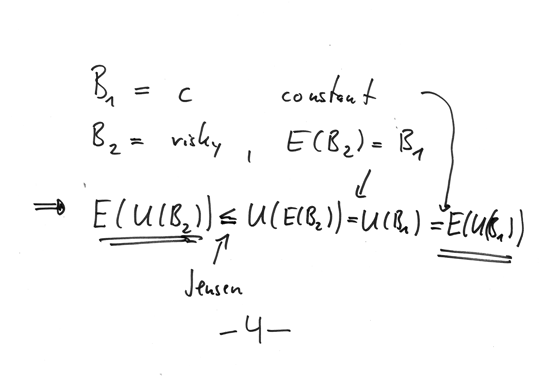 B₁ = c constant
B₂ = risky, E(B₂) = B₁
⇒ E(U(B₂)) ≤ U(E(B₂)) = U(B₁) = E(U(B₁))
Jensen
-4-